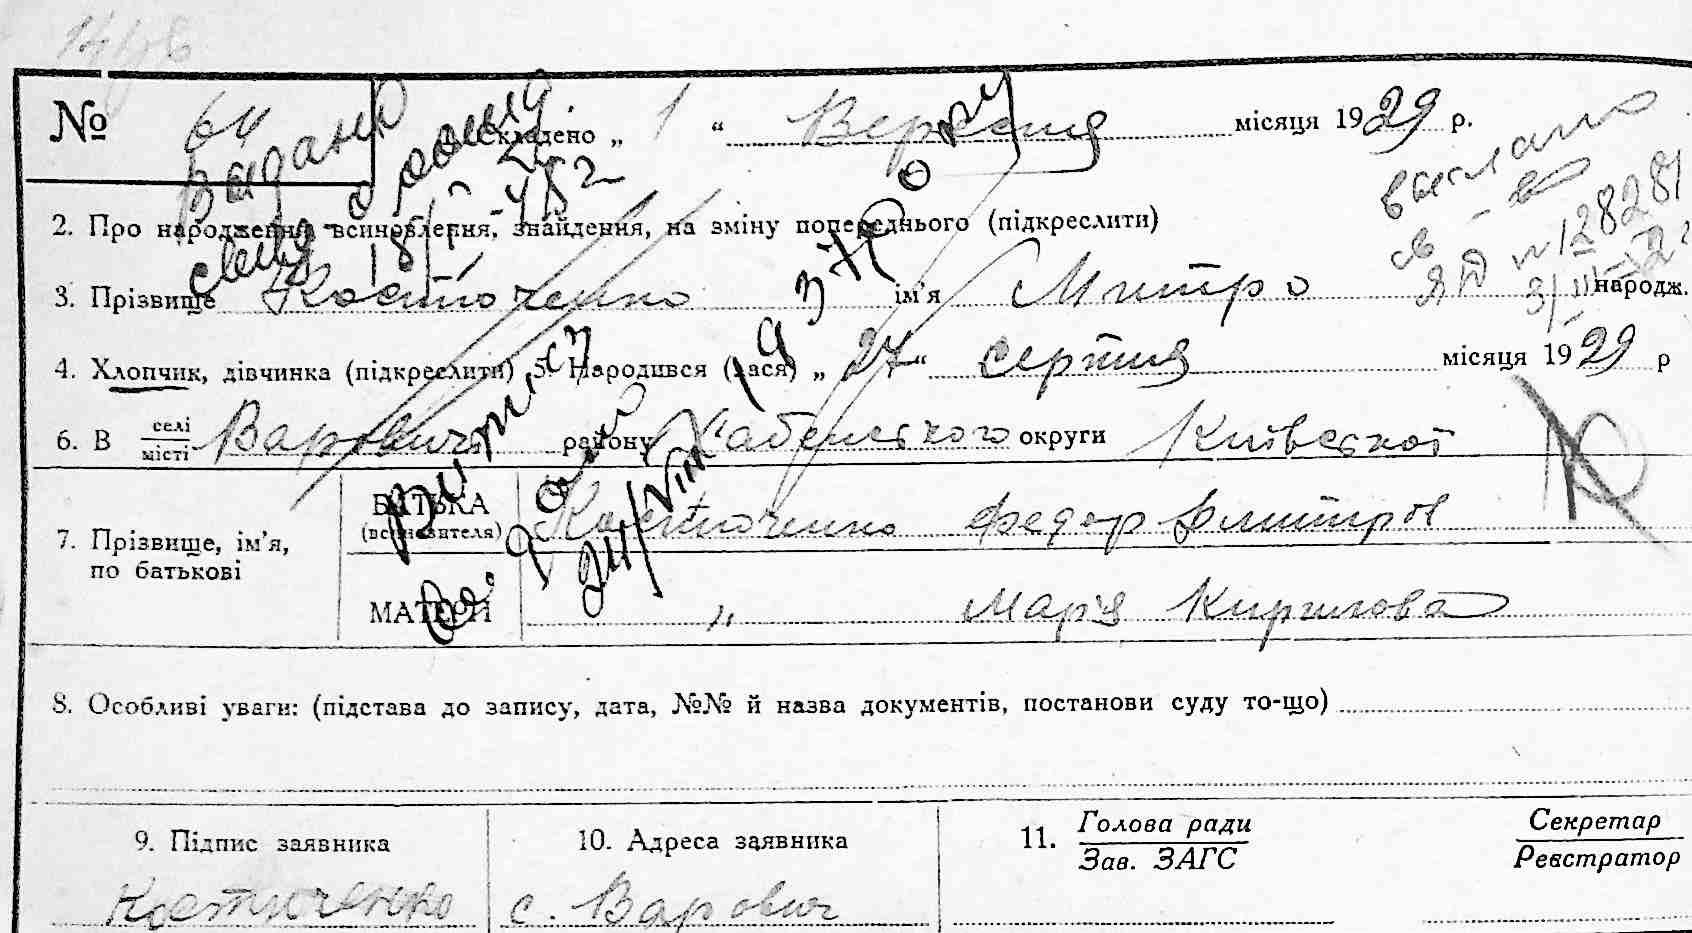 № 64 Складено „ 1 “ Вересня місяця 1929 р.
2. Про народження, всиновлення, знайдення, на зміну попереднього (підкреслити)
3. Прізвище Костюченко ім'я Митро народж.
4. Хлопчик, дівчинка (підкреслити) 5. Народився (лася) „ 27 “ серпня місяця 1929 р
6. В селі місті Варовичі району Хабенського округи Київської
7. Прізвище, ім'я, по батькові
БАТЬКА (всиновителя) Костюченко Федор Дмитров
МАТЕРИ „ Марія Кирилова
8. Особливі уваги: (підстава до запису, дата, №№ й назва документів, постанови суду то-що)
9. Підпис заявника 10. Адреса заявника 11. Голова ради Зав. ЗАГС Секретар Реєстратор
Костюченко с. Варович
выслано
№ 128281